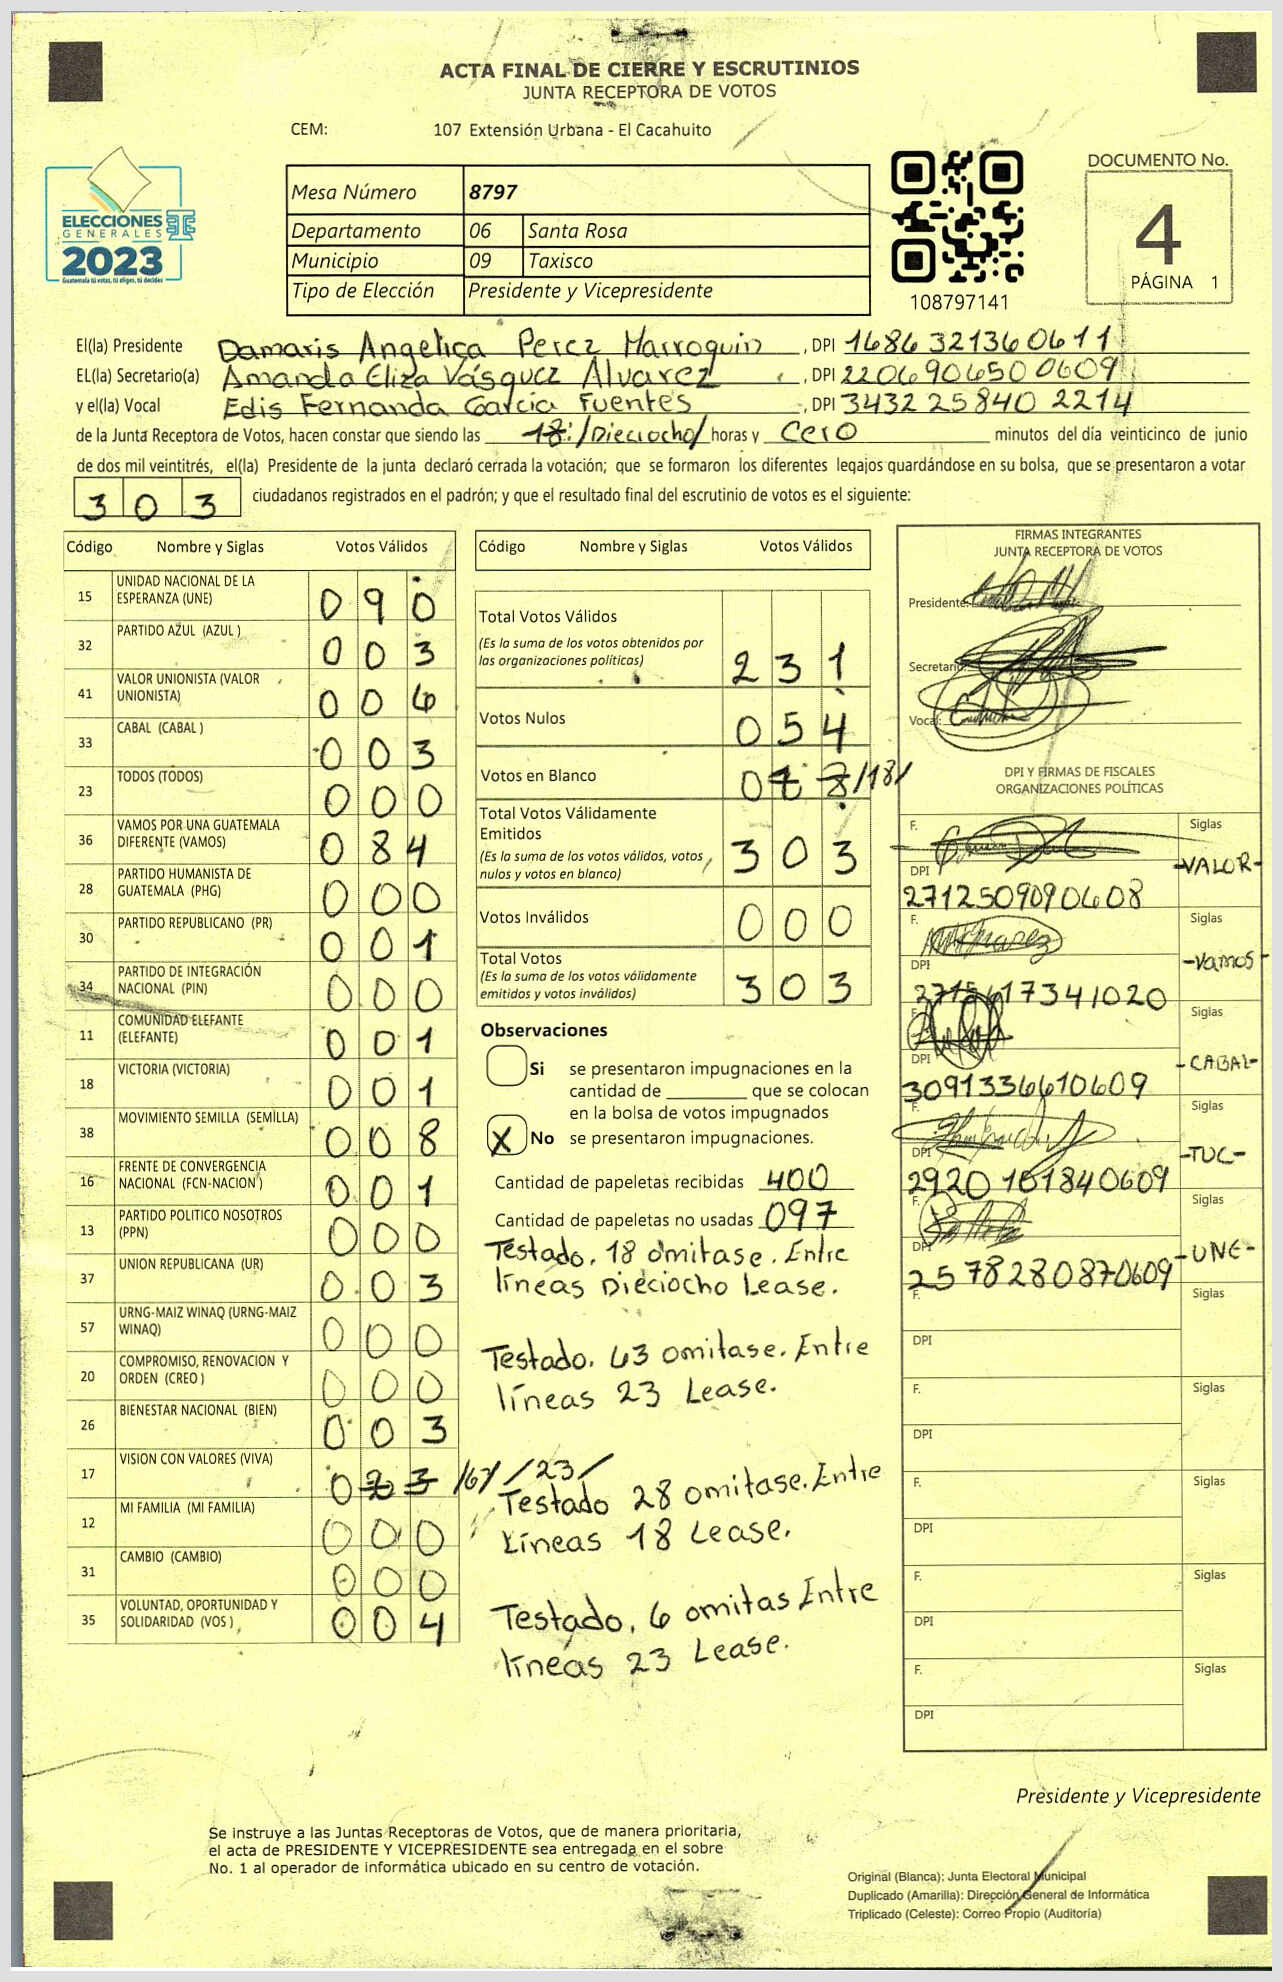 ACTA FINAL DE CIERRE Y ESCRUTINIOS
JUNTA RECEPTORA DE VOTOS
CEM: 107 Extensión Urbana - El Cacahuito
ELECCIONES
GENERALES
2023
Guatemala tú votas, tú eliges, tú decides
Mesa Número 8797
Departamento 06 Santa Rosa
Municipio 09 Taxisco
Tipo de Elección Presidente y Vicepresidente
108797141
DOCUMENTO No.
4
PÁGINA 1
El(la) Presidente Damaris Angelica Perez Marroquin, DPI 1686321360611
EL(la) Secretario(a) Amanda Eliza Vásquez Alvarez, DPI 2206906500609
y el(la) Vocal Edis Fernanda García Fuentes, DPI 3432258402214
de la Junta Receptora de Votos, hacen constar que siendo las 18:/Dieciocho/ horas y cero minutos del día veinticinco de junio
de dos mil veintitrés, el(la) Presidente de la junta declaró cerrada la votación; que se formaron los diferentes legajos guardándose en su bolsa, que se presentaron a votar
303 ciudadanos registrados en el padrón; y que el resultado final del escrutinio de votos es el siguiente:
Código Nombre y Siglas Votos Válidos
15 UNIDAD NACIONAL DE LA ESPERANZA (UNE) 090
32 PARTIDO AZUL (AZUL ) 003
41 VALOR UNIONISTA (VALOR UNIONISTA) 006
33 CABAL (CABAL ) 003
23 TODOS (TODOS) 000
36 VAMOS POR UNA GUATEMALA DIFERENTE (VAMOS) 084
28 PARTIDO HUMANISTA DE GUATEMALA (PHG) 000
30 PARTIDO REPUBLICANO (PR) 001
34 PARTIDO DE INTEGRACIÓN NACIONAL (PIN) 000
11 COMUNIDAD ELEFANTE (ELEFANTE) 001
18 VICTORIA (VICTORIA) 001
38 MOVIMIENTO SEMILLA (SEMILLA) 008
16 FRENTE DE CONVERGENCIA NACIONAL (FCN-NACION ) 001
13 PARTIDO POLITICO NOSOTROS (PPN) 000
37 UNION REPUBLICANA (UR) 003
57 URNG-MAIZ WINAQ (URNG-MAIZ WINAQ) 000
20 COMPROMISO, RENOVACION Y ORDEN (CREO ) 000
26 BIENESTAR NACIONAL (BIEN) 003
17 VISION CON VALORES (VIVA) 0 /23/
12 MI FAMILIA (MI FAMILIA) 000
31 CAMBIO (CAMBIO) 000
35 VOLUNTAD, OPORTUNIDAD Y SOLIDARIDAD (VOS ) 004
Código Nombre y Siglas Votos Válidos
Total Votos Válidos 231
(Es la suma de los votos obtenidos por las organizaciones políticas)
Votos Nulos 054
Votos en Blanco 0 /18/
Total Votos Válidamente Emitidos 303
(Es la suma de los votos válidos, votos nulos y votos en blanco)
Votos Inválidos 000
Total Votos 303
(Es la suma de los votos válidamente emitidos y votos inválidos)
Observaciones
Si se presentaron impugnaciones en la
cantidad de ________ que se colocan
en la bolsa de votos impugnados
X No se presentaron impugnaciones.
Cantidad de papeletas recibidas 400
Cantidad de papeletas no usadas 097
Testado. 18 omitase. Entre
líneas Dieciocho Lease.
Testado. 63 omitase. Entre
líneas 23 Lease.
Testado 28 omitase. Entre
Líneas 18 Lease.
Testado. 6 omitas Entre
líneas 23 Lease.
FIRMAS INTEGRANTES
JUNTA RECEPTORA DE VOTOS
Presidente:
Secretario:
Vocal:
DPI Y FIRMAS DE FISCALES
ORGANIZACIONES POLÍTICAS
F. Siglas
DPI -VALOR-
2712509090608
F. Siglas
DPI -Vamos-
17341020
F. Siglas
DPI -CABAL-
3091336610609
F. Siglas
DPI -TUC-
2920161840609
F. Siglas
DPI -UNE-
2578280870609
F. Siglas
DPI
F. Siglas
DPI
F. Siglas
DPI
F. Siglas
DPI
F. Siglas
DPI
Presidente y Vicepresidente
Se instruye a las Juntas Receptoras de Votos, que de manera prioritaria,
el acta de PRESIDENTE Y VICEPRESIDENTE sea entregada en el sobre
No. 1 al operador de informática ubicado en su centro de votación.
Original (Blanca): Junta Electoral Municipal
Duplicado (Amarilla): Dirección General de Informática
Triplicado (Celeste): Correo Propio (Auditoría)